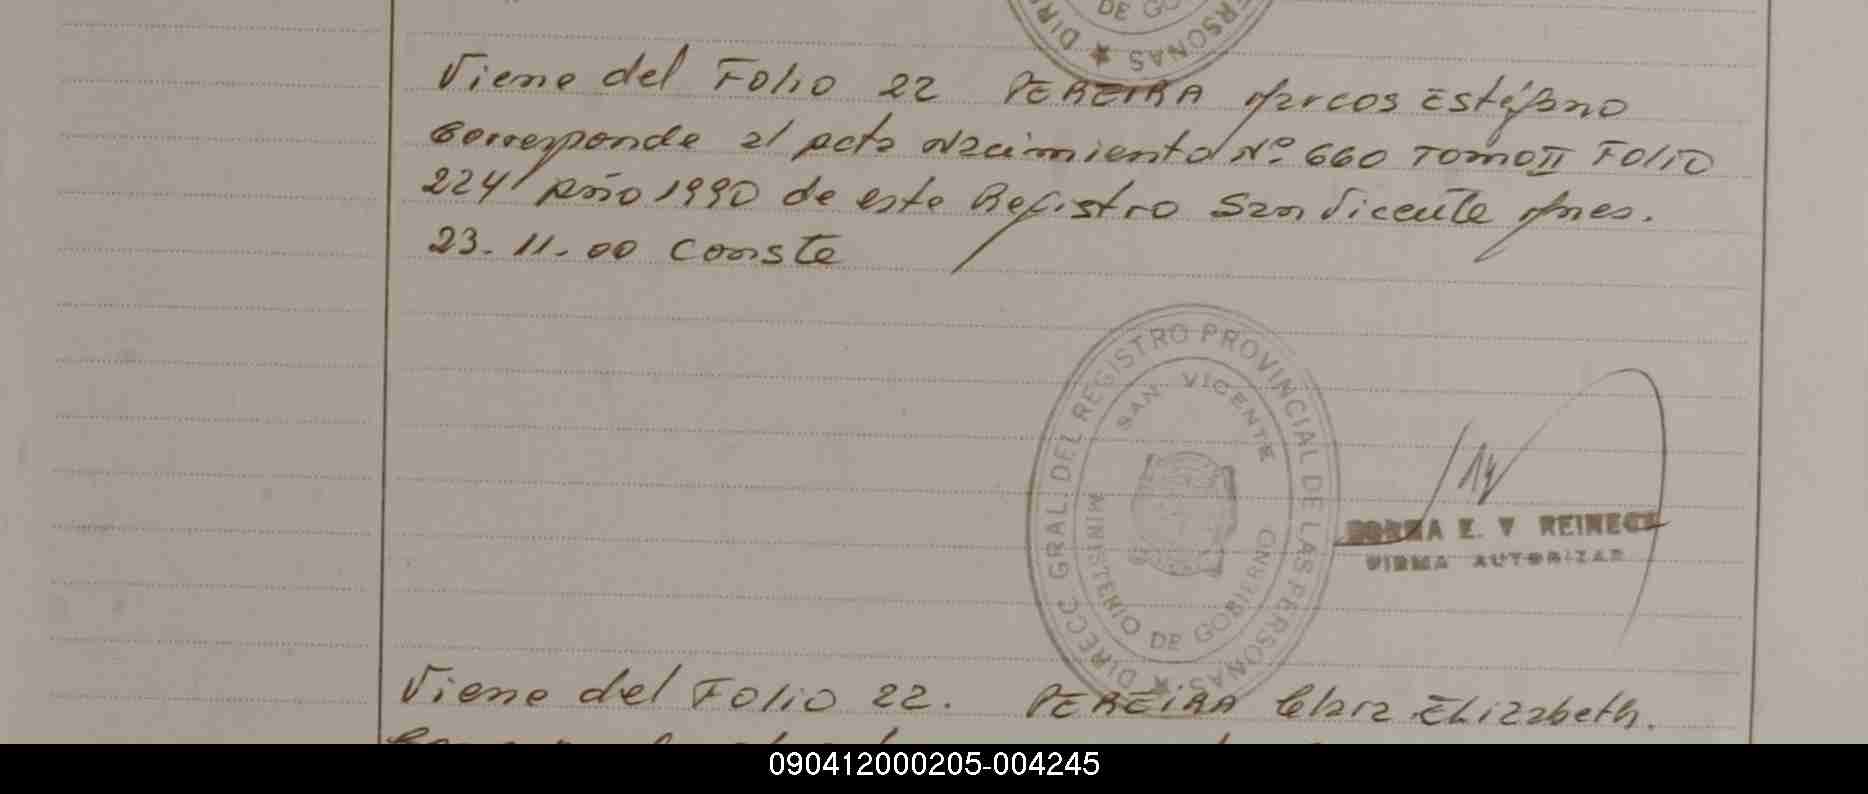 DE GO
DIR
ERSONAS
Viene del Folio 22 PEREIRA Marcos Estéfano
Corresponde al acta Nacimiento Nº 660 Tomo II Folio
224 Año 1990 de este Registro San Vicente Mnes.
23.11.00 Conste
DIRECC. GRAL. DEL REGISTRO PROVINCIAL DE LAS PERSONAS
SAN VICENTE
MINISTERIO DE GOBIERNO
E. V REINECK
FIRMA AUTORIZAD
Viene del Folio 22. PEREIRA Clara Elizabeth.
090412000205-004245